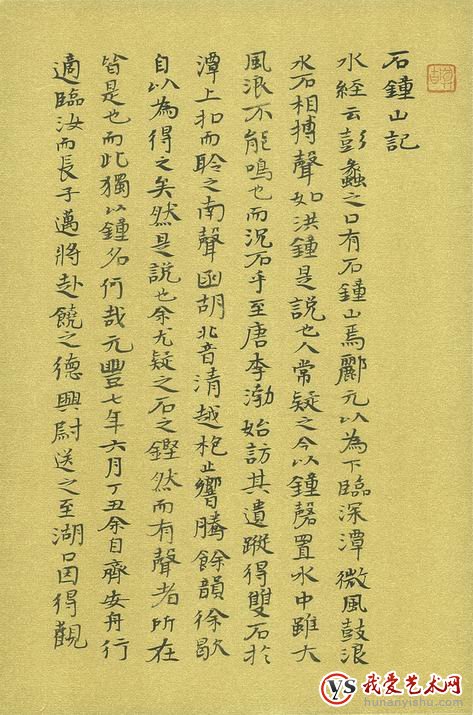 石鐘山記
水經云彭蠡之口有石鐘山焉酈元以為下臨深潭微風鼓浪
水石相搏聲如洪鐘是說也人常疑之今以鐘磬置水中雖大
風浪不能鳴也而況石乎至唐李渤始訪其遺蹤得雙石於
潭上扣而聆之南聲函胡北音清越枹止響騰餘韻徐歇
自以為得之矣然是說也余尤疑之石之鏗然而有聲者所在
皆是也而此獨以鐘名何哉元豐七年六月丁丑余自齊安舟行
適臨汝而長子邁將赴饒之德興尉送之至湖口因得觀
YS 我爱艺术网
hunanyishu.com